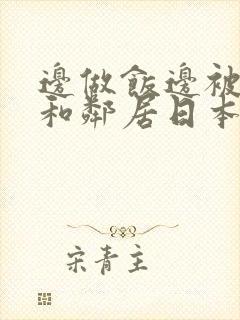 邊做飯邊被
和鄰居日本
宋青主